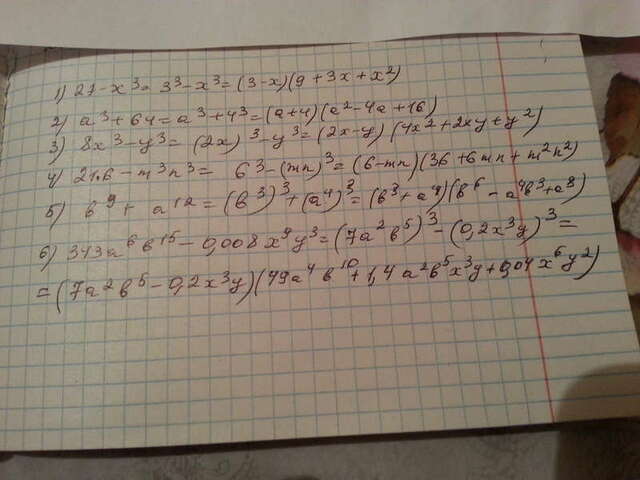 1) 27-x³= 3³-x³= (3-x)(9+3x+x²)
2) a³+64=a³+4³=(a+4)(a²-4a+16)
3) 8x³-y³= (2x)³-y³=(2x-y)(4x²+2xy+y²)
4) 216-m³n³= 6³-(mn)³=(6-mn)(36+6mn+m²n²)
5) b⁹+a¹²=(b³)³+(a⁴)³=(b³+a⁴)(b⁶-a⁴b³+a⁸)
6) 343a⁶b¹⁵-0,008x⁹y³=(7a²b⁵)³-(0,2x³y)³=
=(7a²b⁵-0,2x³y)(49a⁴b¹⁰+1,4a²b⁵x³y+0,04x⁶y²)